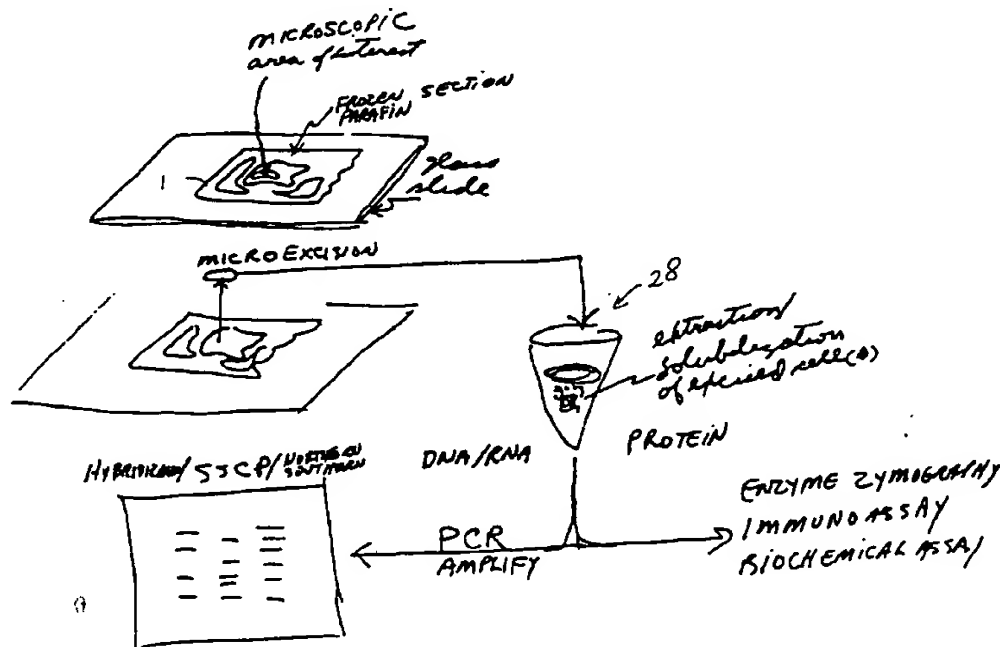 MICROSCOPIC
area of interest
FROZEN SECTION
PARAFIN
1
glass
slide
MICRO EXCISION
28
extraction/
solubilization
of excised cell(s)
DNA/RNA
PROTEIN
HYBRIDIZATION/SSCP/NORTHERN
SOUTHERN
PCR
AMPLIFY
ENZYME ZYMOGRAPHY
IMMUNOASSAY
BIOCHEMICAL ASSAY